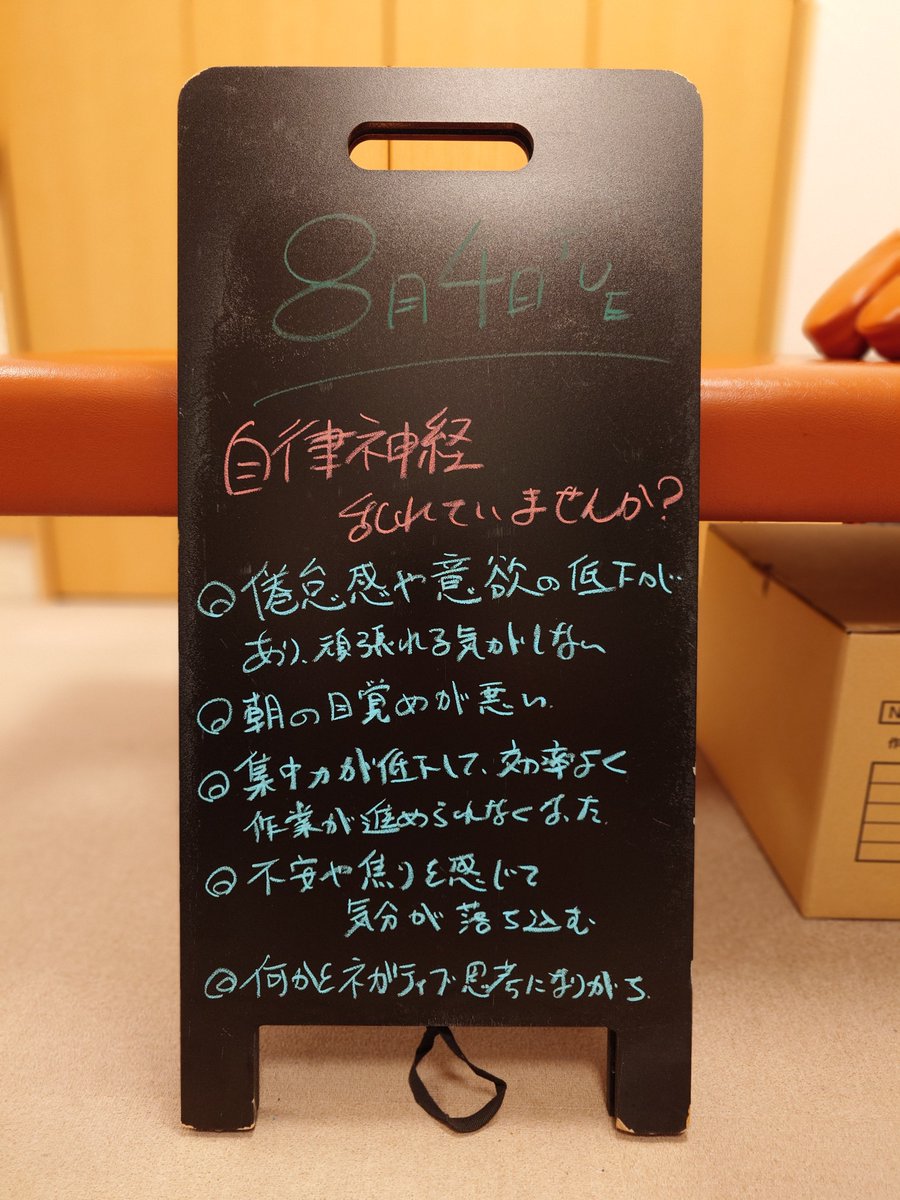 8月4日TUE
自律神経
乱れていませんか?
◎倦怠感や意欲の低下が
あり、頑張れる気がしない
◎朝の目覚めが悪い.
◎集中力が低下して、効率よく
作業が進められなくなった.
◎不安や焦りを感じて
気分が落ち込む
◎何かとネガティブ思考になりがち.